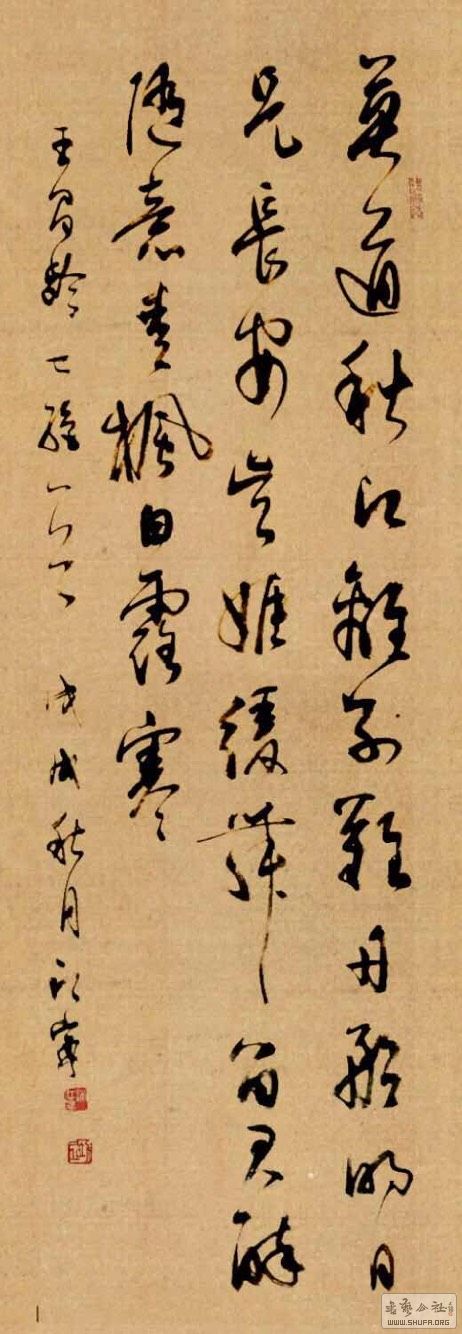 莫道秋江離別難舟船明日
是長安吳姬緩舞留君醉
隨意青楓白露寒
王昌齡七絕一首 戊戌秋月
書藝公社
WWW.SHUFA.ORG